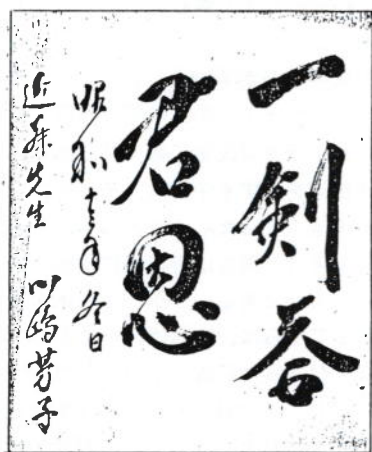 一剣答
君恩
昭和十二年冬日
近藤先生 川嶋芳子